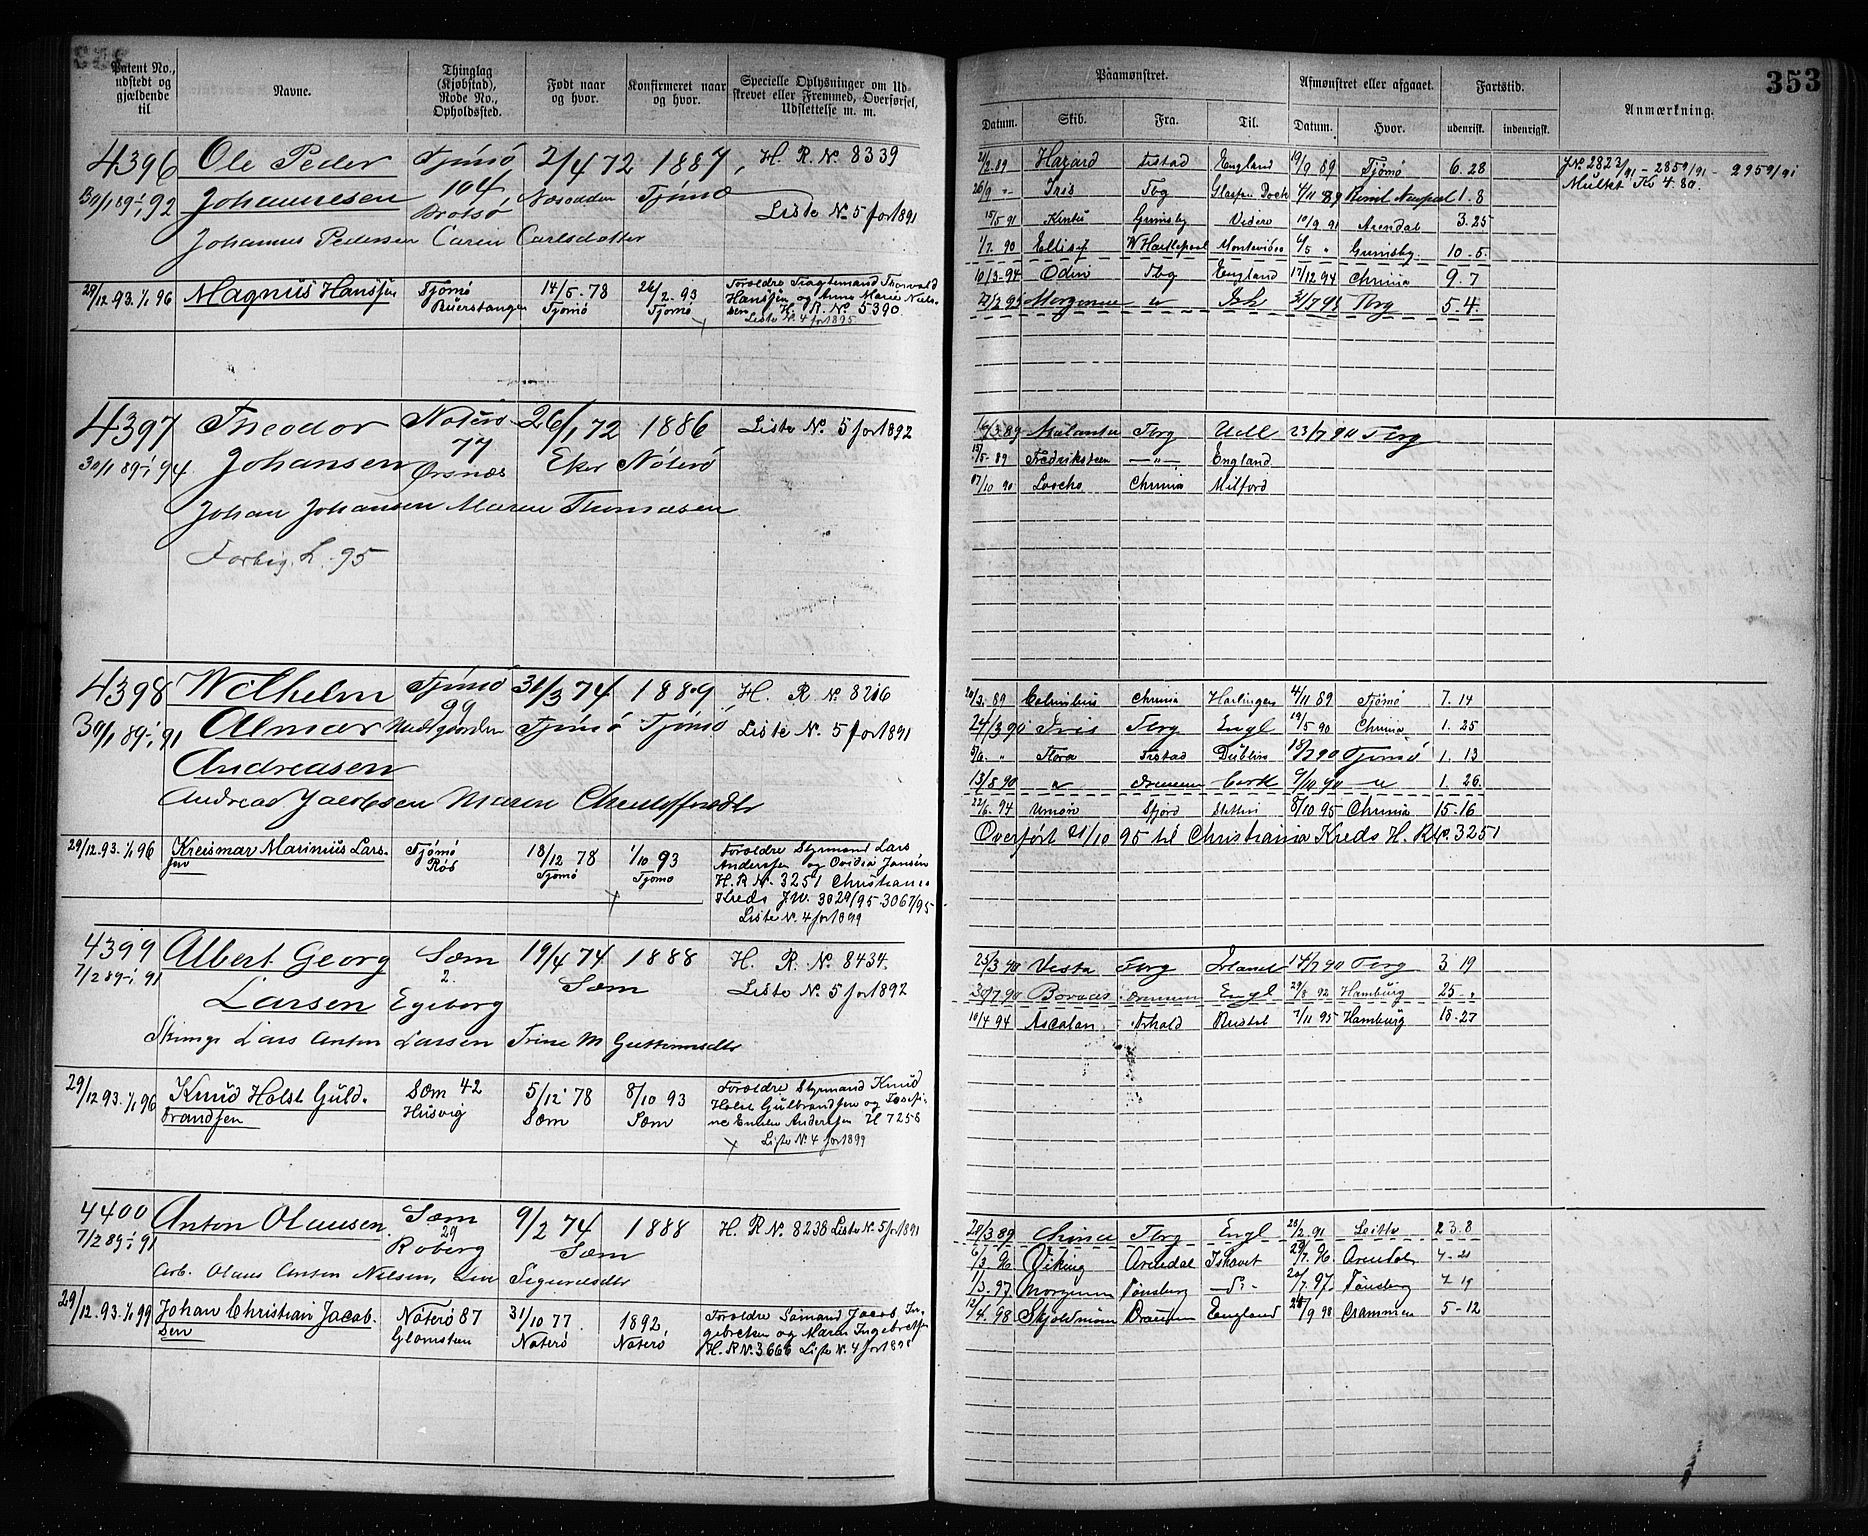 353
Patent No., udstedt og gjældende til
Navne.
Thinglag (Kjøbstad), Rode No., Opholdssted.
Født naar og hvor.
Konfirmeret naar og hvor.
Specielle Oplysninger om Udskrevet eller Fremmed, Overførsel, Udslettelse m. m.
Paamønstret.
Afmønstret eller afgaaet.
Fartstid.
Anmærkning.
Datum.
Skib.
Fra.
Til.
Datum.
Hvor.
udenrigsk.
indenrigsk.
4396 Ole Peder Tjømø 2/4 72 1887, H. R. No 8339
30/1 89-1/1 92 Johannesen 104 Næsodden Tjømø
Brotsø Liste No 5 for 1891
Johannes Pedersen Caren Carlsdatter
29/12 93. 1/1 96 Magnus Hanssen Tjømø 14/5 - 78 26/2 - 93 Forældre Fragtemand Thorvald
Tjømø Tjømø Hanssen og Anne Marie Niel-
sen H. R. No 5390
Liste No. 4 for 1895
2/2 89 Hazard England 19/9 89 Tjømø 6. 28
26/9 " Iris Tbg 4/11 89 1. 8
15/5 91 Grimsby 10/9 91 Arendal 3. 25
1/7. 90 W Hartlepool Montevideo 6/5 " Grimsby 10 - 5.
10/3-94 Odin Tbg England 17/12 94 Chrnia 9. 7
5 - 4.
J.N. 2823/91 - 2859/91 - 2959/91
Mulkt Kr 4. 80.
4397 Theodor Nøterø 26/1 72 1886 Liste No. 5 for 1892
30/1 89-1/1 94. Johansen 77 Eker Nøterø
Ørsnæs
Johan Johansen Maren Thomasen
Forbig. L. 95
Tbrg 23/7 90 Tbrg
15/5- 89 Fredriksteen —"— England
17/10 90 Chrnia Milford
4398 Wilhelm Tjømø 31/3 74 1889 H. R No. 8216
30/1 89-1/1 91 Almar 99 Tjømø Tjømø Liste No. 5 for 1891
Medtgaarden
Andreasen
Andreas Jacobsen Maren
29/12. 93. 1/1 96 Kreismar Marinius Lars- Tjømø 18/12 78 1/10 93 Forældre Styrmand Lars
sen Røs Tjømø Tjømø Anderssen og Ovidia Jansen
H. R No. 3251 Christiania
Kreds JN. 3029/95-3067/95
Liste No. 4 for 1899
20/3. 89 Columbus Chrnia Harlingen 4/11 89 Tjömö 7. 14
24/3 90 Iris Tbrg Engl 19/5 90 Chrnia 1. 25
5/6. " Flora Dublin 18/7 90 Tjømø 1. 13
13/8 90 " Cork 9/10 90 " 1. 26.
22/6. 94 Union Stettin 8/10 95 Chrnia 15 - 16
Overført 21/10 95 til Christiania Kreds H. R No. 3251
4399 Albert Georg Sæm 19/4 74 1888 H. R. No. 8434.
7/2 89-1/1 91 Larsen 2. Egeborg Sæm Liste No. 5 for 1892
Lars Anton Larsen Trine M
29/12 93. 1/1 96 Knud Holst Guld- Sæm 42 5/12 78 8/10 93 Forældre Styrmand Knud
brandsen Husvig Sæm Sæm Holst Gulbrandsen og Josefi-
ne Emilie Anderssen H 7256
Liste No. 4 for 1899
25/3 90 Vesta Tbrg Irland 14/7 90 Tbrg 3 19
30/7 90 Boreas Engl 29/8 92 Hamburg 25 - "
10/4 94 Ascalon 7/11 95 Hamburg 18 - 27
4400 Anton Olausen Sæm 9/2 74 1888 H. R No. 8238 Liste No. 5 for 1891
7/2 89-1/1 91 29 Roberg Sæm
Arb. Olaus Anton Nielsen,
29/12. 93. 1/1 99 Johan Christian Jacob- Nøterø 87 31/10 77. 1892, Forældre Sømand Jacob In-
sen Glomsten Nøterø Nøterø gebretsen og Maren Ingebretsen
H. R No. 3666 Liste No. 4 for 1898
28/3 89 China Tbrg Engl 28/2. 91 Leith 23. 8
6/3 96 Viking Arendal Ishavet 29/7. 96 Arendal 4 - 21
1/3. 97. Morgenen Tønsberg 20/7. 97. Tønsberg 4 19
12/4. 98 Skjoldmøen Drammen England 28/9 98 Drammen 5 - 12